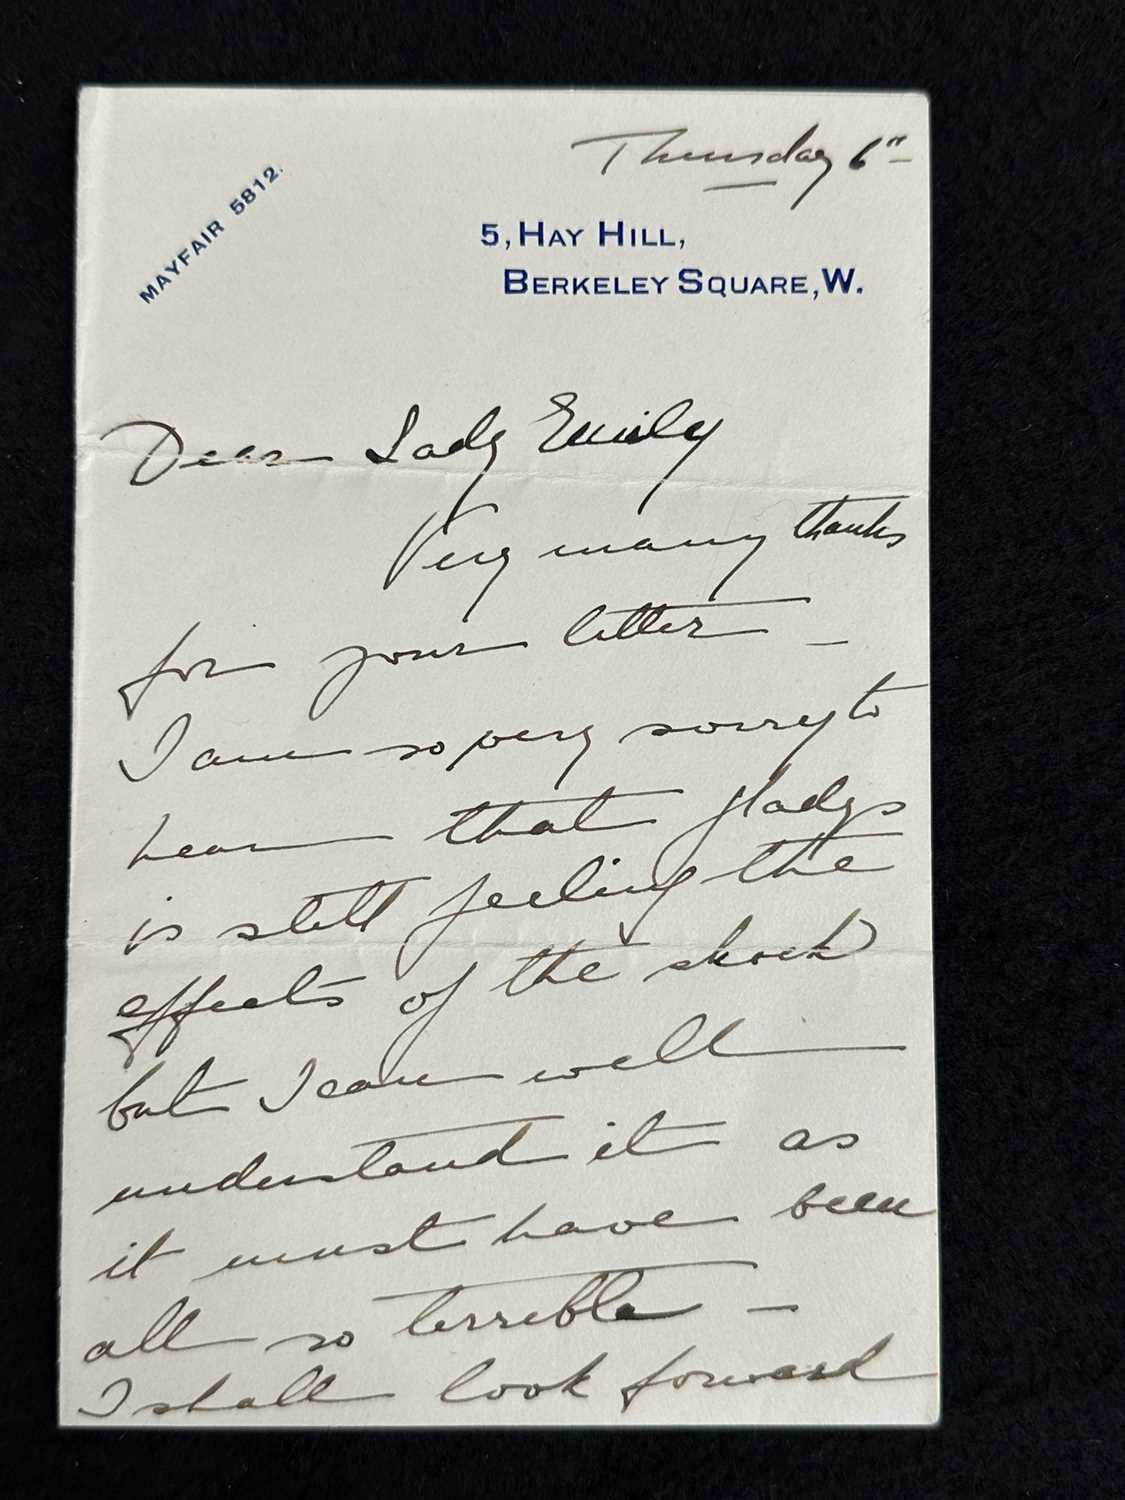 Thursday 6th
MAYFAIR 5812.
5, HAY HILL,
BERKELEY SQUARE, W.
Dear Lady Emily
Very many thanks
for your letter –
I am so very sorry to
hear that Gladys
is still feeling the
effects of the shock
but I can well
understand it as
it must have been
all so terrible –
I shall look forward